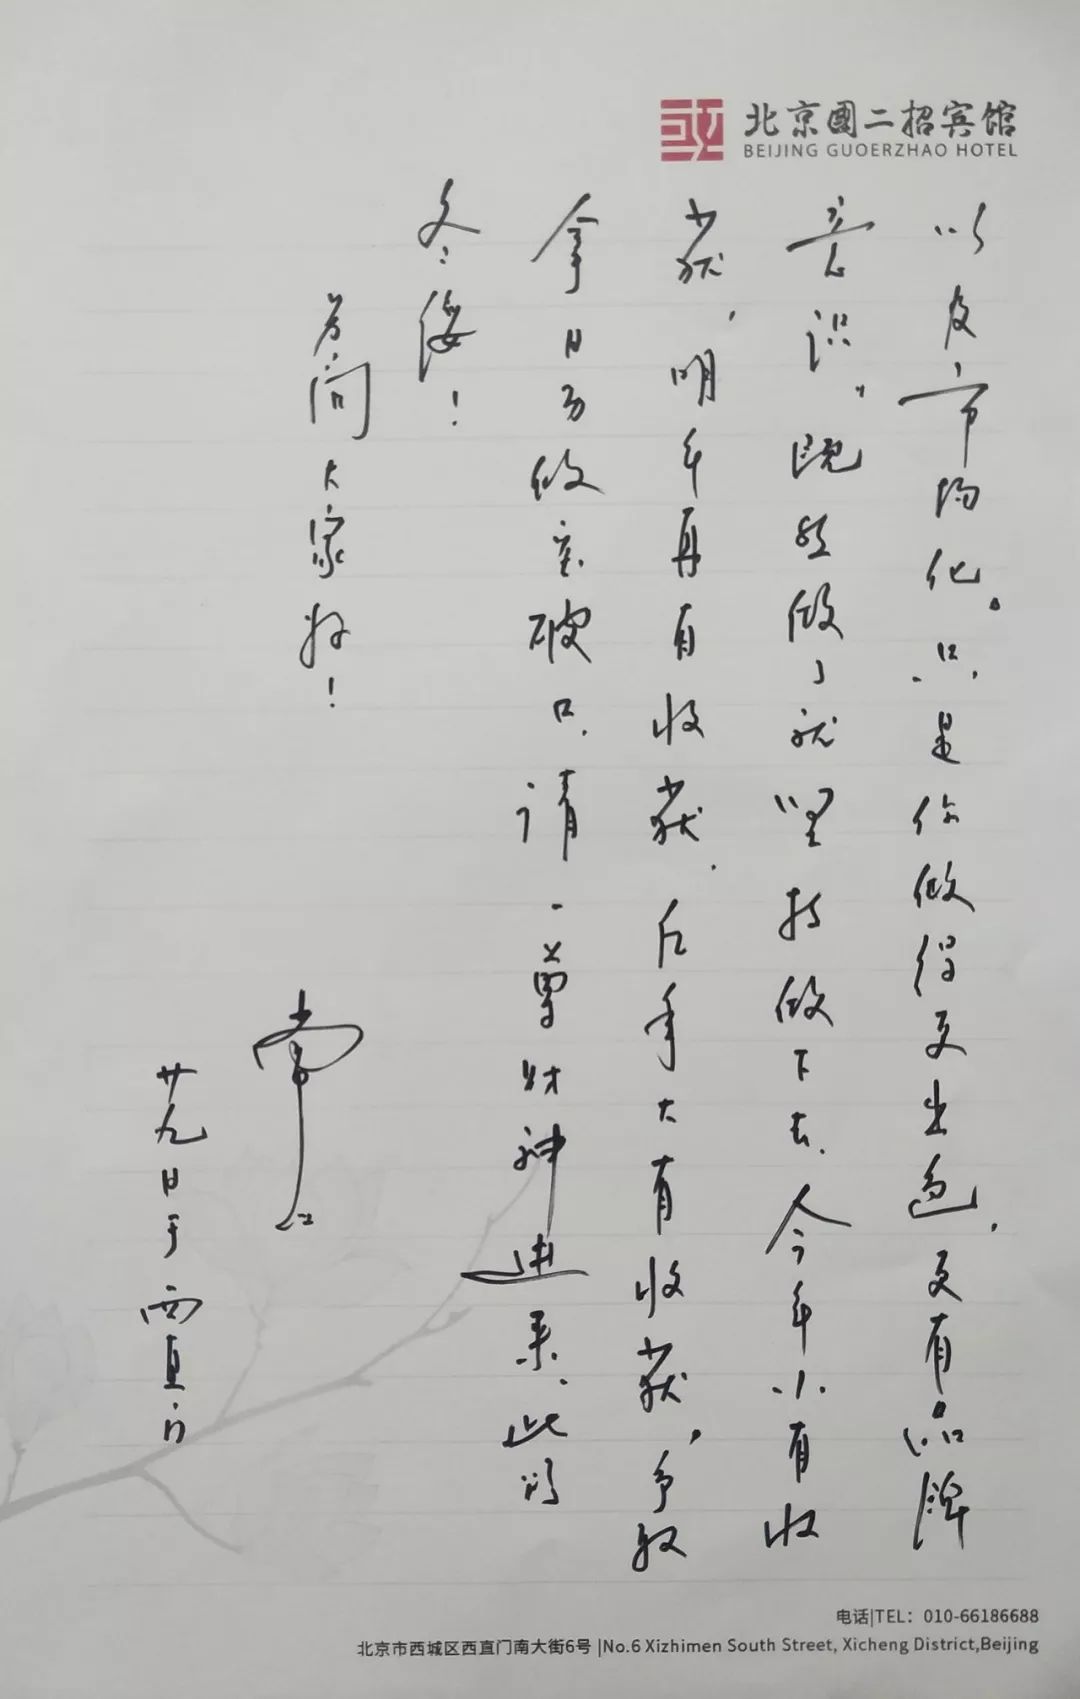 北京國二招宾馆
BEIJING GUOERZHAO HOTEL
以及市场化。只是你做得更出色，更有品牌
意识。既然做了就坚持做下去，今年小有收
获，明年再有收获，后年大有收获，争取
拿日方做突破口，请一尊财神进来，此颂
冬绥！
为问大家好！
常江
廿九日于西直门
电话|TEL：010-66186688
北京市西城区西直门南大街6号 |No.6 Xizhimen South Street, Xicheng District,Beijing